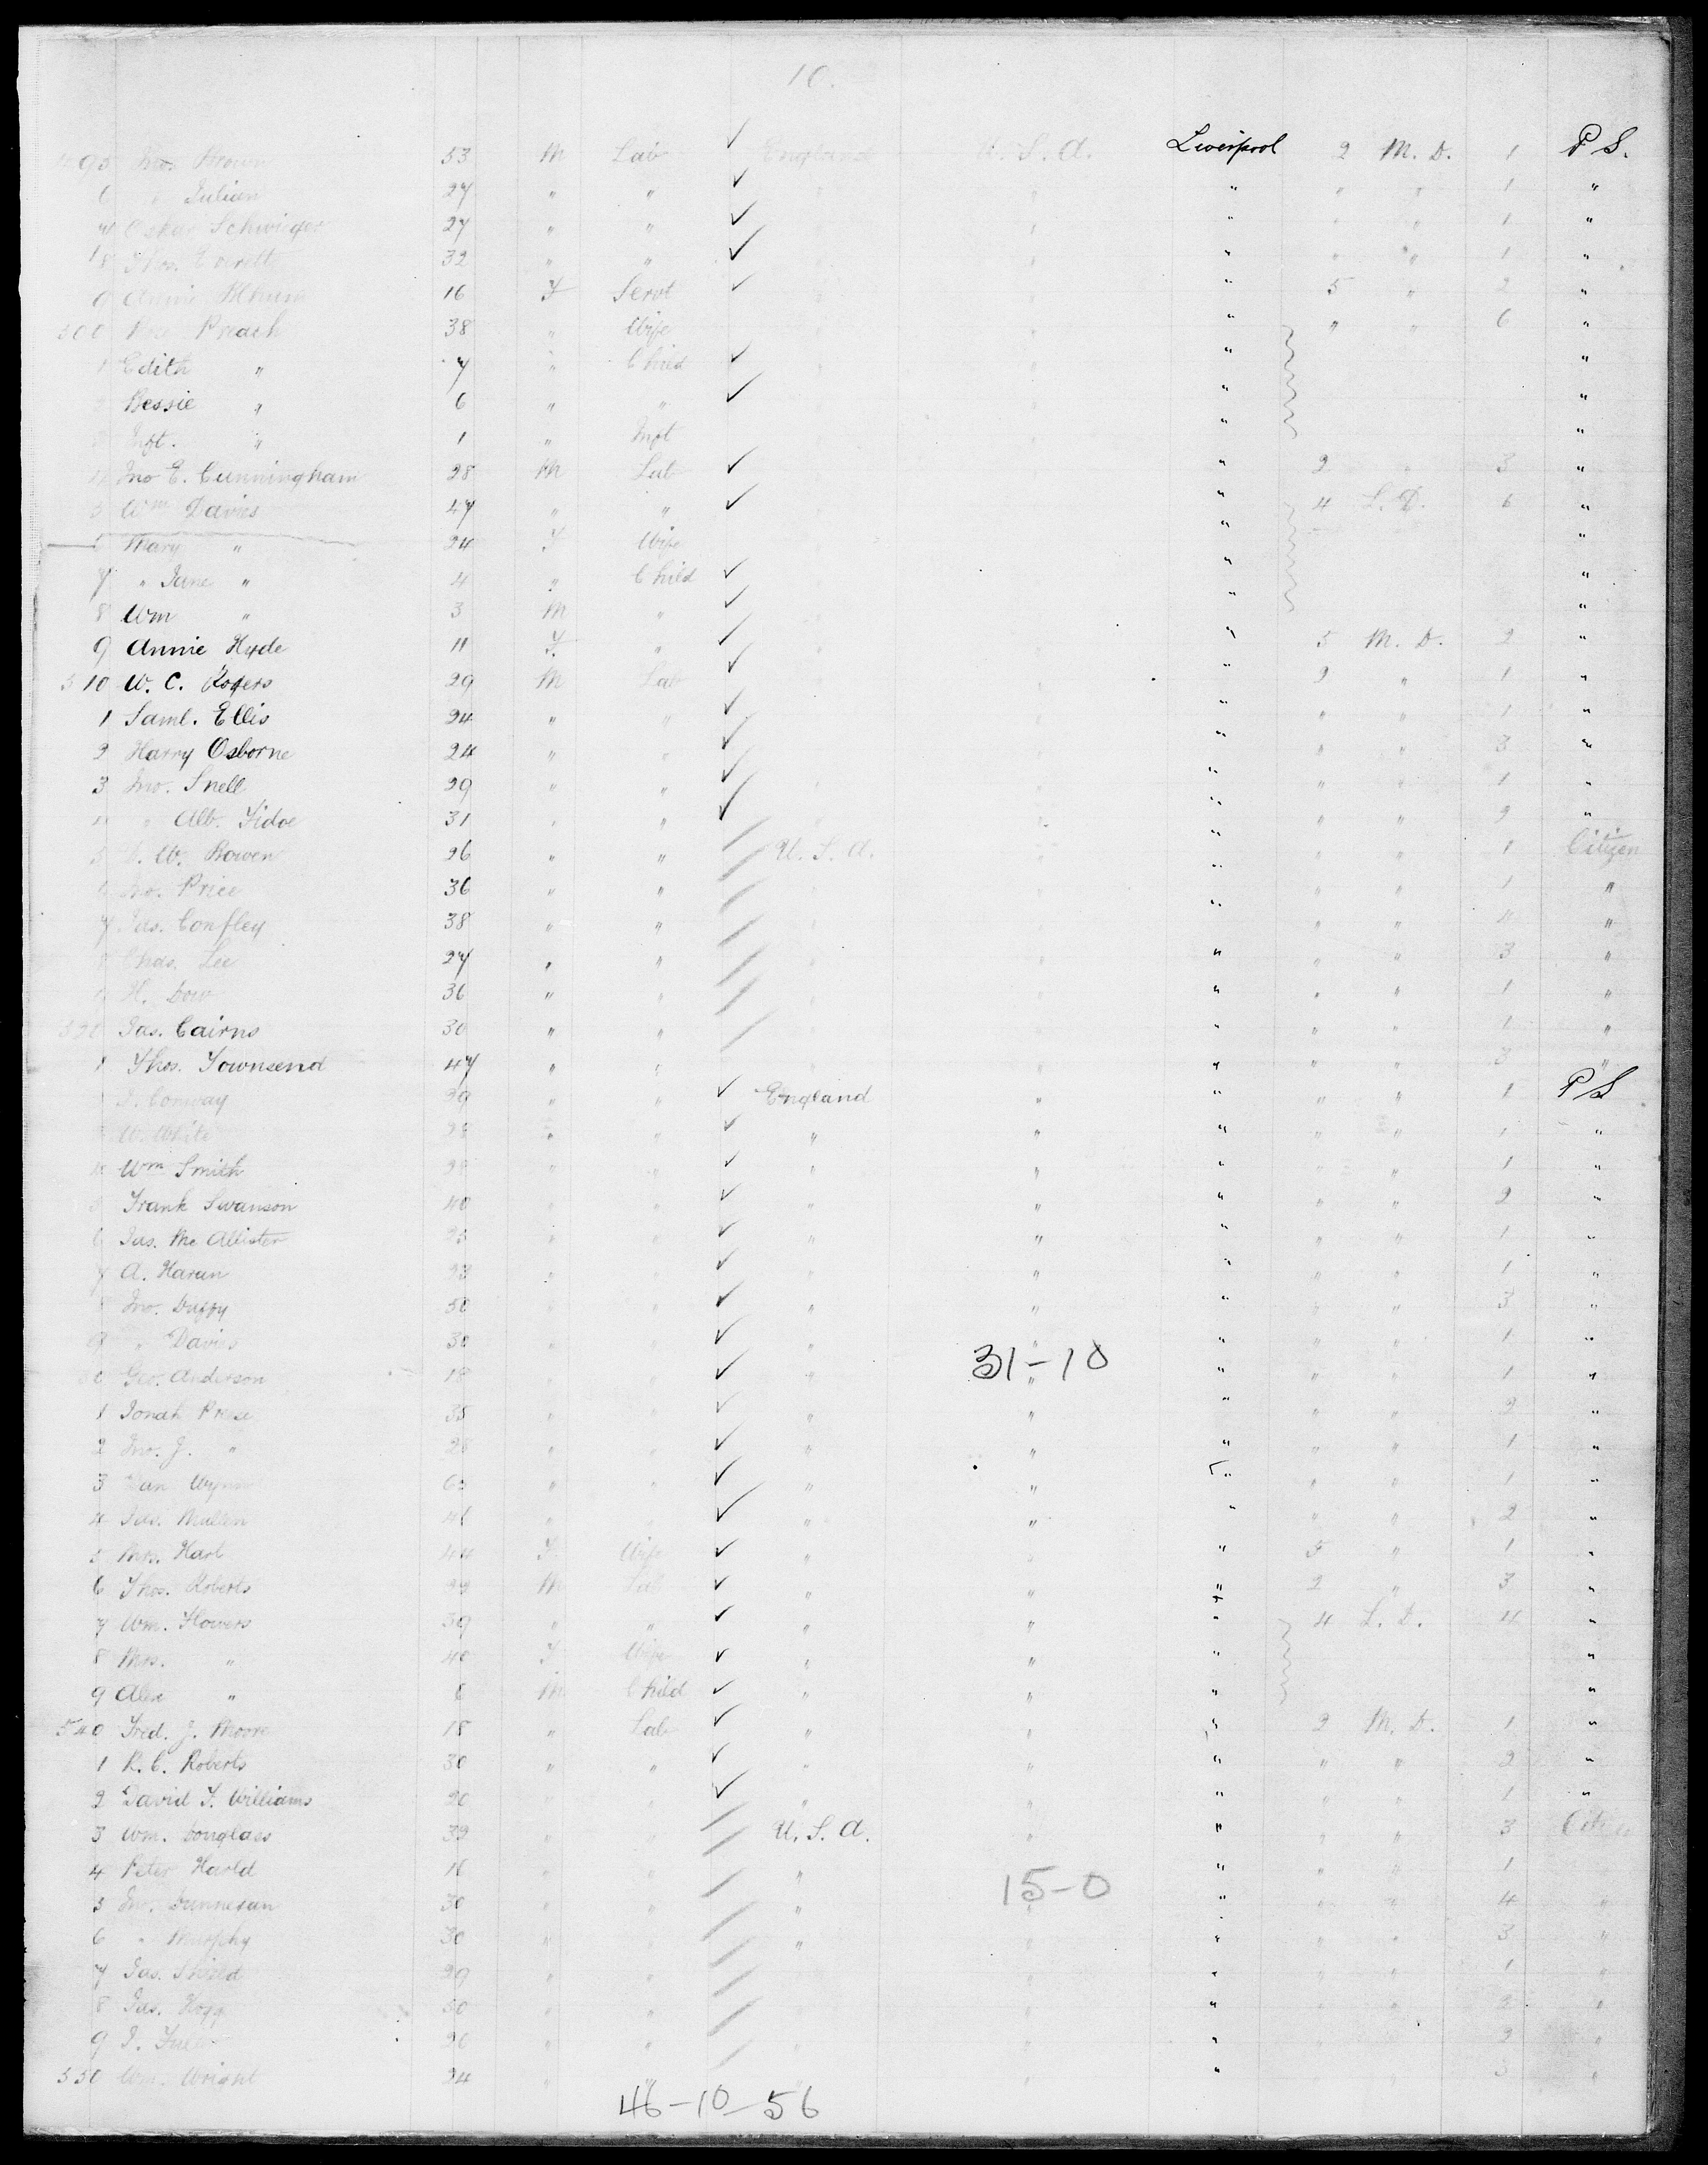 10.
495 Jno. Brown 53 M Lab ✓ England U. S. A. Liverpool 2 M. D. 1 P S.
6 " Julian 27 " " ✓ " " " " " 1 "
7 Oskar Schwieger 27 " " ✓ " " " " " 1 "
18 Thos. Everett 32 " " ✓ " " " " " 1 "
9 Annie 16 F Servt ✓ " " " 5 " 2 "
500 Preach 38 " Wife " " " " " 6 "
1 Edith " 7 " Child ✓ " " " "
2 Bessie " 6 " " ✓ " " " "
3 Inft. " 1 " Inft " " " "
4 Jno E. Cunningham 28 M Lab ✓ " " " 2 " 3 "
5 Wm Davies 47 " " ✓ " " " 4 L. D. 6 "
6 Mary " 24 F Wife " "
7 " Jane " 4 " Child ✓ " "
8 Wm " 3 M " ✓ " "
9 Annie Hyde 11 F. " ✓ " " " 5 M. D. 2 "
510 W. C. Rogers 29 M Lab ✓ " " " 2 " 1 "
1 Saml. Ellis 24 " " ✓ " " " " " 1 "
2 Harry Osborne 24 " " ✓ " " " " " 3 "
3 Jno. Snell 29 " " ✓ " " " " " 1 "
4 " Alb. Fidoe 31 " " ✓ " " " " " 2 "
5 W. Bowen 26 " " / U. S. A. " " " " 1 Citizen
6 Jno. Price 36 " " / " " " " " 1 "
7 Jas. Confley 38 " " / " " " " " 4 "
8 Chas. Lee 27 " " / " " " " " 3 "
9 H. Dow 36 " " / " " " " " 1 "
520 Jas. Cairns 30 " " / " " " " " 1 "
1 Thos. Townsend 47 " " " " " " " 3 "
Conway 39 " " ✓ England " " " " 1 P S
W. White 28 " " ✓ " " " " " 1 "
4 Wm Smith " " ✓ " " " " " 1 "
5 Frank Swanson 40 " " ✓ " " " " " 2 "
6 Jas. McAllister 25 " " ✓ " " " " " 1 "
7 A. Haran 23 " " ✓ " " " " " 1 "
8 Jno. Duffy 50 " " ✓ " " " " " 3 "
9 " Davies 30 " " ✓ " " " " " 1 "
31-10
30 Geo. Anderson 18 " " ✓ " " " " " 1 "
1 Jonah Preese 35 " " ✓ " " " " " 2 "
2 Jno. J. " " " ✓ " " " " " 1 "
3 Dan Wynn " " ✓ " " " " " 1 "
4 Jas. Mullen " " ✓ " " " " " 2 "
5 Mrs. Harl 44 F Wife ✓ " " " 5 " 1 "
6 Thos. Roberts M Lab ✓ " " " 2 " 3 "
7 Wm. Flowers 39 " " ✓ " " " 4 L. D. 4 "
8 Mrs. " 40 F Wife ✓ " " " "
9 Alex " M Child ✓ " " " "
540 Fred. J. Moore 18 " Lab ✓ " " " 2 M. D. 1 "
1 R. C. Roberts 30 " " ✓ " " " " " 2 "
2 David T. Williams 20 " " ✓ " " " " " 1 "
3 Wm. Douglass 39 " " / U. S. A. " " " " 3 Citizen
4 Peter Harld 18 " " / " " " " 1
15-0
5 Jno. Dunnesan 30 " " / " " " " " 4 "
6 " Murphy 30 " " / " " " " " 3 "
7 Jas. Shield 29 " " / " " " " 1 "
8 Jas. Hogg 50 " " / " " " " "
9 J. 20 " " / " " " 2 "
550 Wm. Wright 24 " " / " " " 3 "
46-10-56